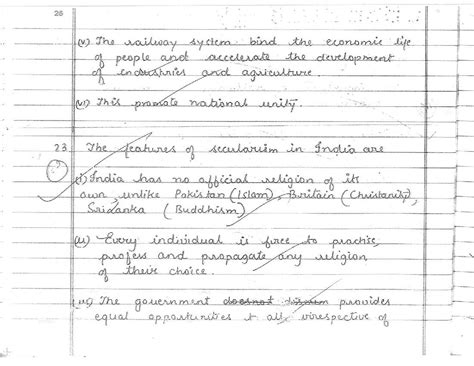 26
(v) The railway system bind the economic life
of people and accelerate the development
of industries and agriculture.
(vi) This promote national unity.
23 The features of secularism in India are
(i) India has no official religion of its
own, unlike Pakistan (Islam), Britain (Christianity),
Srilanka (Buddhism)
(ii) Every individual is free to practise,
profess and propagate any religion
of their choice.
(iii) The government doesnot provides
equal opportunities to all irrespective of